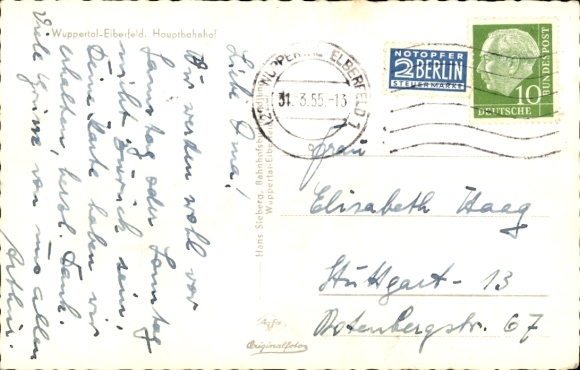 Wuppertal-Elberfeld. Hauptbahnhof
Liebe Oma!
Wir werden wohl vor
Samstag oder Sonntag
nicht zurück sein,
Deine Karte haben wir
erhalten, herzl. Dank.
Viele Grüsse von uns allen
Arthur.
Hans Sieberg, Bahnhofsbuchhandlung
Wuppertal-Elberfeld
WUPPERTAL-ELBERFELD 1
31. 3.55.-13
NOTOPFER
2 BERLIN
STEUERMARKE
DEUTSCHE
BUNDESPOST
10
Frau
Elisabeth Haag
Stuttgart-13
Rotenbergstr. 67
Agfa
Originalfoto